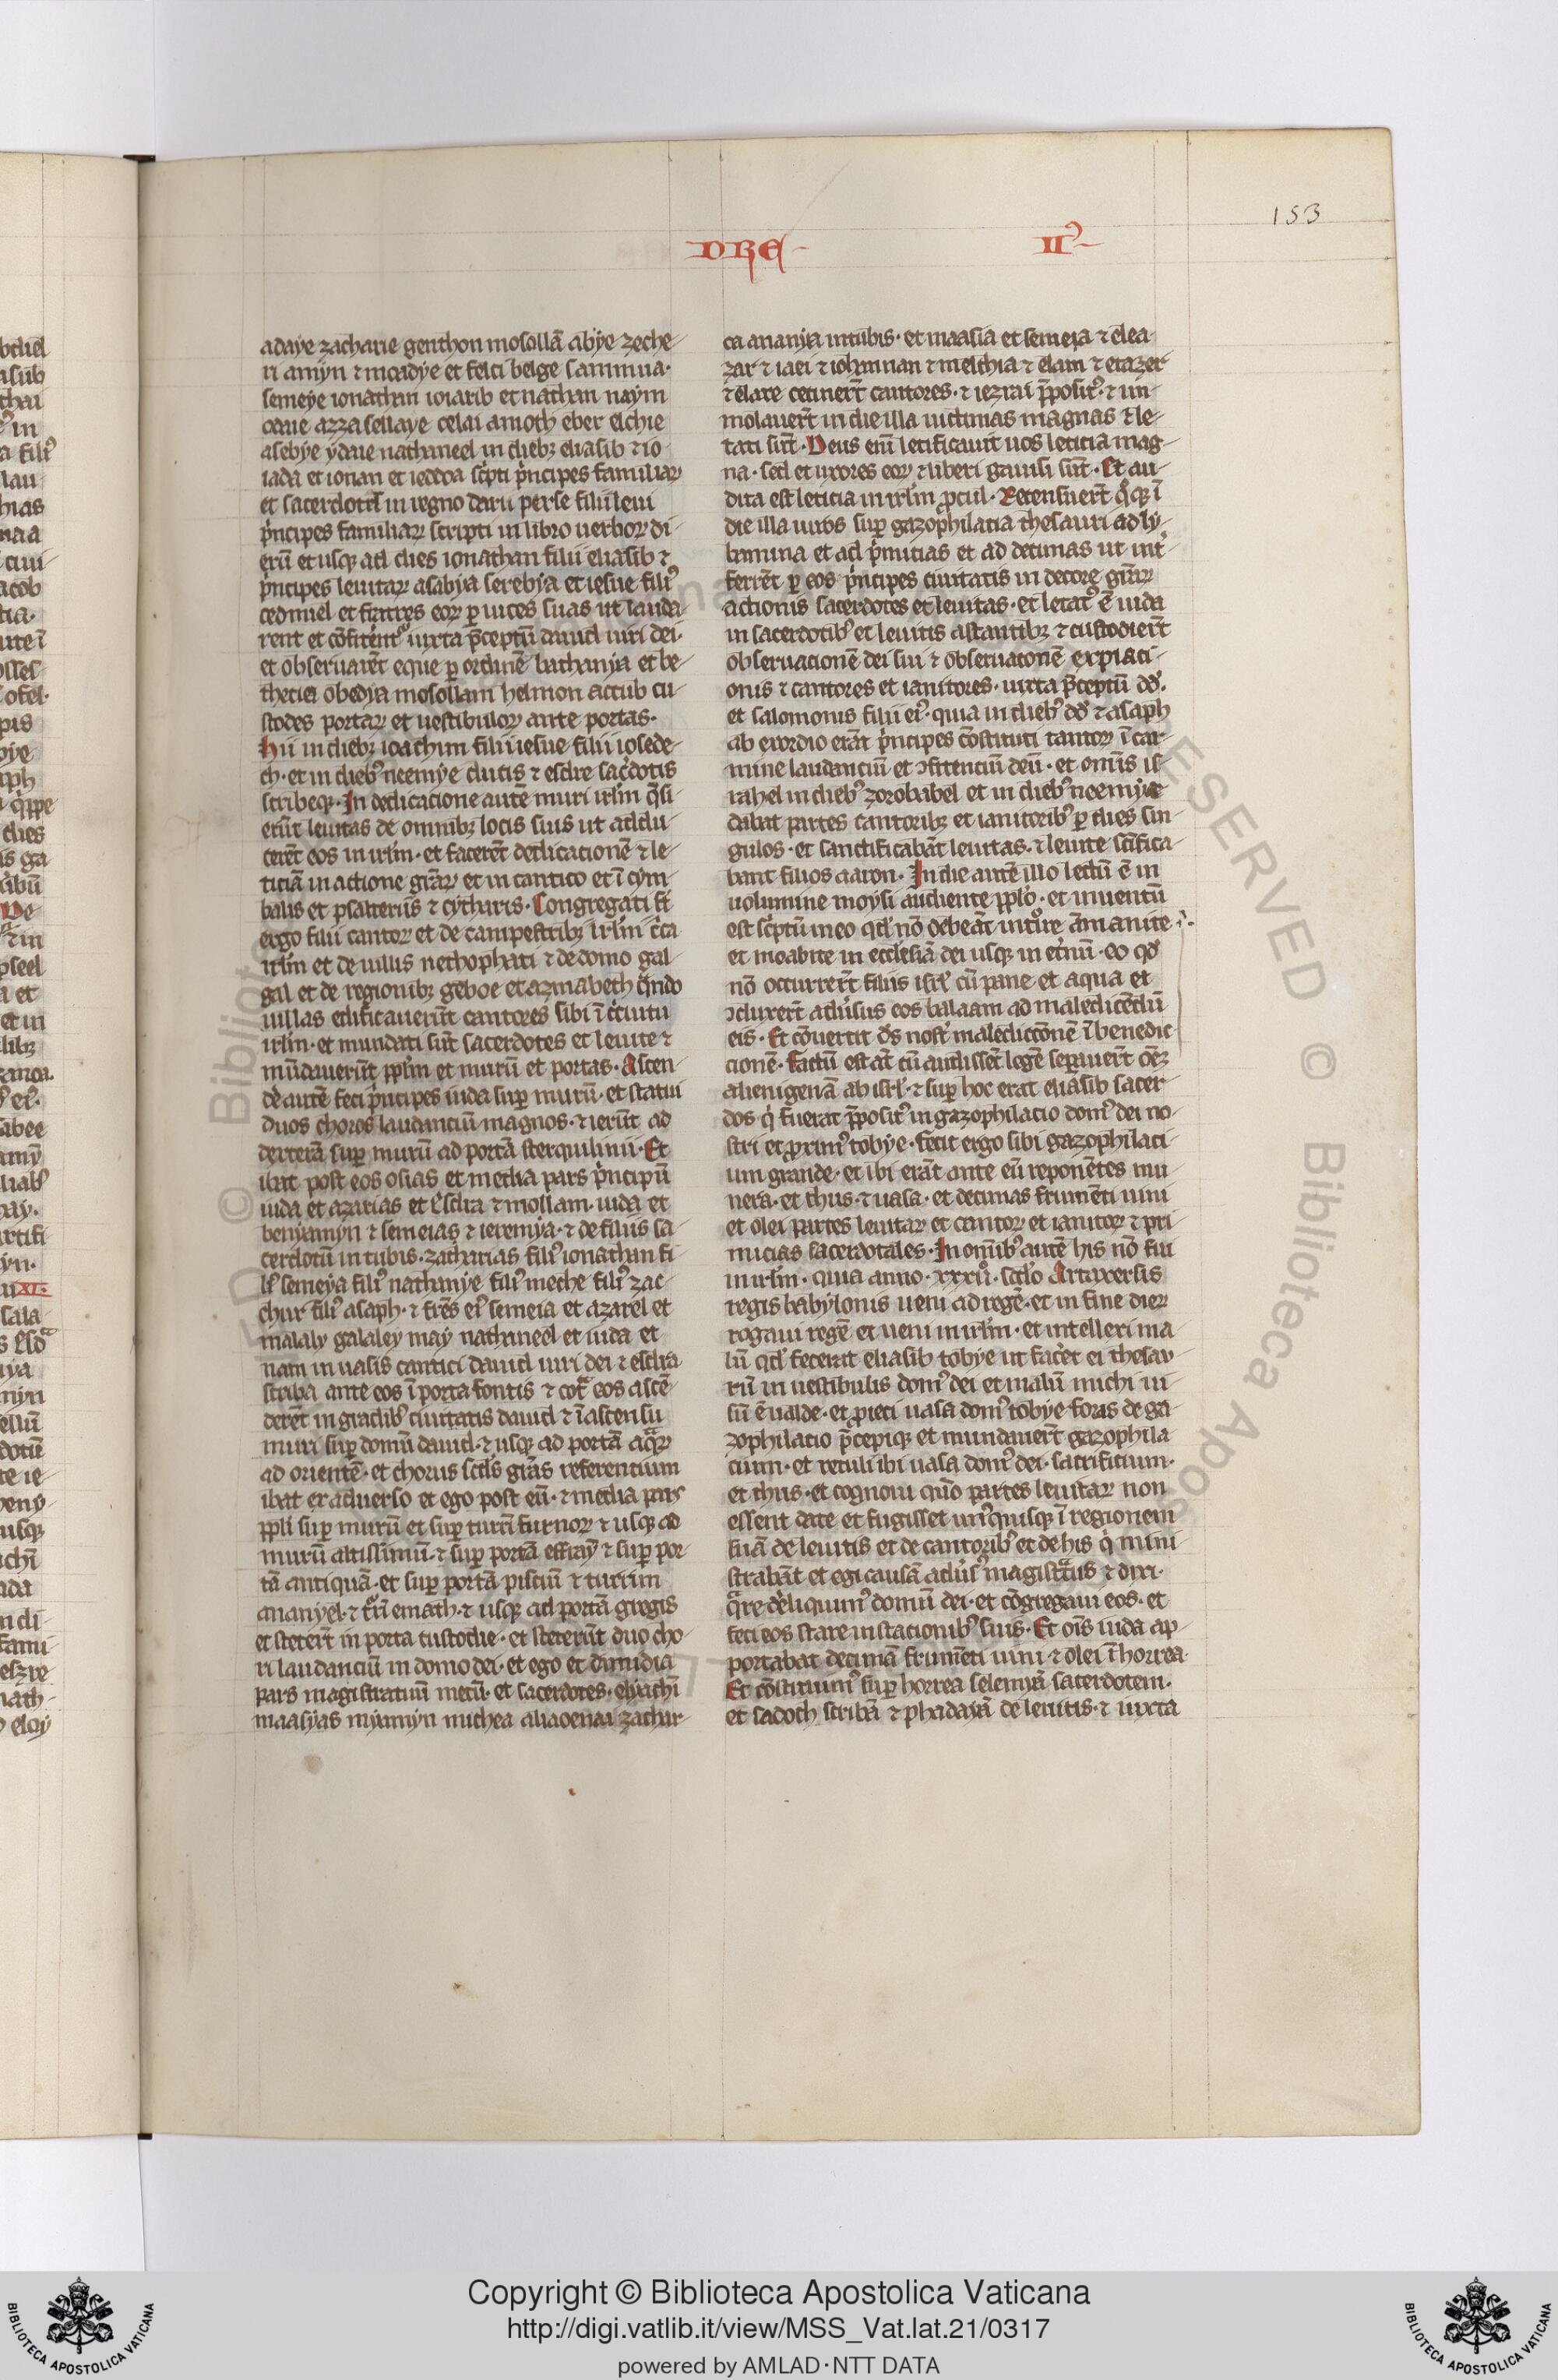 153
DRE IIꝰ
adaye zacharie genthon mosollā abye zeche-
ri amyn ⁊ moadye et felti belge sammua·
semeye ionathan ioiarib et nathan naym
odaie azza sellaye celai amoth eber elchie
asebye ydaie nathaneel in diebꝫ eliasib ⁊ io-
iada et ionan et ieddoa sc̄pti pͥncipes familiaꝝ
et sacerdotes in regno darii perse filii leui
pͥncipes familiaꝝ scripti in libro uerboꝝ di-
erū et usqꝫ ad dies ionathan filii eliasib ⁊
pͥncipes leuitaꝝ asabya serebya et iesue filiꝰ
cedmiel et fratres eoꝝ ꝑ uices suas ut lauda-
rent et cōfiterentͬ iuxta p̄ceptū dauid uiri dei·
et obseruarēt eque ꝑ ordinē bathanya et be-
thecia obedya mosollam helmon accub cu-
stodes portaꝝ et uestibuloꝝ ante portas·
Hii in diebꝫ ioachim filii iesue filii iosede-
ch· et in diebꝰ neemye ducis ⁊ esdre sac̄dotis
scribeqꝫ· In dedicacione autē muri irl̄m q̄si-
erūt leuitas de omnibꝫ locis suis ut addu-
cerēt eos in irl̄m· et facerēt dedicacionē ⁊ le-
ticiā in actione grāꝝ et in cantico et ī cym-
balis et psalteriis ⁊ cytharis· Congregati sī
ergo filii cantoꝝ et de campestribꝫ irl̄m c̄ca
irl̄m et de uillis nethophati ⁊ de domo gal-
gal et de regionibꝫ geboe et azmabeth q̄ndo
uillas edificauerūt cantores sibi ī c̄cuitu
irl̄m· et mundati sūt sacerdotes et leuite ⁊
mūdauerūt ppl̄m et murū et portas· Ascen-
dē autē feci pͥncipes iuda suꝑ murū· et statui
duos choros laudanciū magnos· ⁊ ierūt ad
dexterā suꝑ murū ad portā sterquilinii· Et
ibat post eos osias et media pars pͥncipū
iuda et azarias et esdra ⁊ mollam· iuda et
benyamyn ⁊ semeias ⁊ ieremya· ⁊ de filiis sa-
cerdotū in tubis· zacharias filiꝰ ionathan fi-
lꝰ semeya filiꝰ nathanye filiꝰ meche filiꝰ zac-
chur filiꝰ asaph· ⁊ fr̄es eiꝰ semeia et azarel et
malaly galaley may nathaneel et iuda et
nam in uasis cantici dauid uiri dei ⁊ esdra
scriba ante eos ī porta fontis ⁊ cot̄ eos ascē-
derēt in gradibꝰ ciuitatis dauid ⁊ ī ascensu
muri suꝑ domū dauid· ⁊ usqꝫ ad portā aqͣꝝ
ad orientē· et chorus sc̄ds grās referentium
ibat ex aduerso et ego post eū· ⁊ media pars
ppl̄i suꝑ murū et suꝑ turrī furnoꝝ ⁊ usqꝫ ad
murū altissimū· ⁊ suꝑ portā effraȳ ⁊ suꝑ por-
tā antiquā· et suꝑ portā pisciū ⁊ turrim
ananyel· ⁊ turrī emath· ⁊ usqꝫ ad portā gregis
et steterūt in porta custodie· et steterūt duo cho-
ri laudanciū in domo dei· et ego et dimidia
pars magistratuū mecū· et sacerdotes· elyachī
maasyas myamyn michea alioenai zachar-
ca ananya in tubis· et maasia et semeya ⁊ elea-
zar ⁊ iaei ⁊ iohannan ⁊ melchia ⁊ elam ⁊ etazer
⁊ clare cecinert̄ cantores· ⁊ iezrai p̄positꝰ· ⁊ im-
molauert̄ in die illa uictimas magnas ⁊ le-
tati sūt· Deus enī letificauit uos leticia mag-
na· sed et uxores eoꝝ ⁊ liberi gauisi sūt· Et au-
dita est leticia in irl̄m ꝓcul· Recensuert̄ qͦqꝫ ī
die illa uiros suꝑ gazophilatia thesauri ad ly-
bamina et ad pͥmicias et ad decimas ut int̄-
ferrēt ꝑ eos pͥncipes ciuitatis in decore grāꝝ
actionis sacerdotes et leuitas· et letatꝰ ē iuda
in sacerdotibꝰ et leuitis astantibꝫ ⁊ custodiert̄
obseruacionē dei sui ⁊ obseruatonē expiaci-
onis ⁊ cantores et ianitores· iuxta p̄ceptū dd̄·
et salomonis filii eiꝰ· quia in diebꝰ dd̄ ⁊ asaph
ab exordio erāt pͥncipes cōstituti cantoꝝ ī car-
mine laudanciū et ꝯfitenciū deū· et omīs is-
rahel in diebꝰ zorobabel et in diebꝰ neemye
dabat partes cantoribꝫ et ianitoribꝰ ꝑ dies sin-
gulos· et sanctificabāt leuitas· ⁊ leuite sc̄ifica-
bant filios aaron· In die autē illo lectū ē in
uolumine moysi audiente pplo· et inuentū
est sc̄ptū in eo qd̄ nō debeāt introire āmanite ·i·
et moabite in ecclesiā dei usqꝫ in et̄nū· eo qd̄
nō occurrert̄ filiis isrl̄ cū pane et aqua et
ꝯduxert̄ adūsus eos balaam ad maledicēdū
eis· Et cōuertit ds̄ nost̄ maledictōnē ī benedic-
cionē· Factū est at̄ cū audisset̄ legē seꝑauert̄ oēꝫ
alienigenā ab isrl̄· ⁊ suꝑ hoc erat eliasib sacer-
dos qͥ fuerat p̄positꝰ in gazophilacio domꝰ dei no-
stri et ꝓximꝰ tobye· fecit ergo sibi gazophilaci-
um grande· et ibi erāt ante eū reponētes mu-
nera· et thus· ⁊ uasa· et decimas frumēti uini
et olei partes leuitaꝝ et cantoꝝ et ianitoꝝ ⁊ pri-
micias sacerdotales· In omībꝰ autē his nō fui
in irl̄m· quia anno· xxxiiͦ· sc̄do Artaxersis
regis babylonis ueni ad regē· et in fine dieꝝ
rogaui regē et ueni in irl̄m· et intellexi ma-
lū qd̄ fecerat eliasib tobye ut facēt ei thesau-
rū in uestibulis domꝰ dei et malū michi ui-
sū ē ualde· et ꝓieci uasa domꝰ tobye foras de ga-
zophilacio p̄cepiqꝫ et mundauert̄ gazophila-
cium· et retuli ibi uasa domꝰ dei· sacrificium·
et thus· et cognoui qūo partes leuitaꝝ non
essent date et fugisset unꝰquisqꝫ ī regionem
suā de leuitis et de cantoribꝰ et de his qͥ mini-
strabāt et egi causā adūsꝰ magistͣtus ⁊ dixi·
qͣre deliquimꝰ domū dei· et cōgregaui eos· et
feci eos stare in stacionibꝰ suis· Et oīs iuda ap-
portabat decimā frumēti uini ⁊ olei ī horrea·
Et cōstituimꝰ suꝑ horrea selemyā sacerdotem·
et sadoch scribā ⁊ phadayā de leuitis· ⁊ iuxta
Copyright © Biblioteca Apostolica Vaticana
http://digi.vatlib.it/view/MSS_Vat.lat.21/0317
powered by AMLAD·NTT DATA
BIBLIOTECA APOSTOLICA VATICANA
BIBLIOTECA APOSTOLICA VATICANA